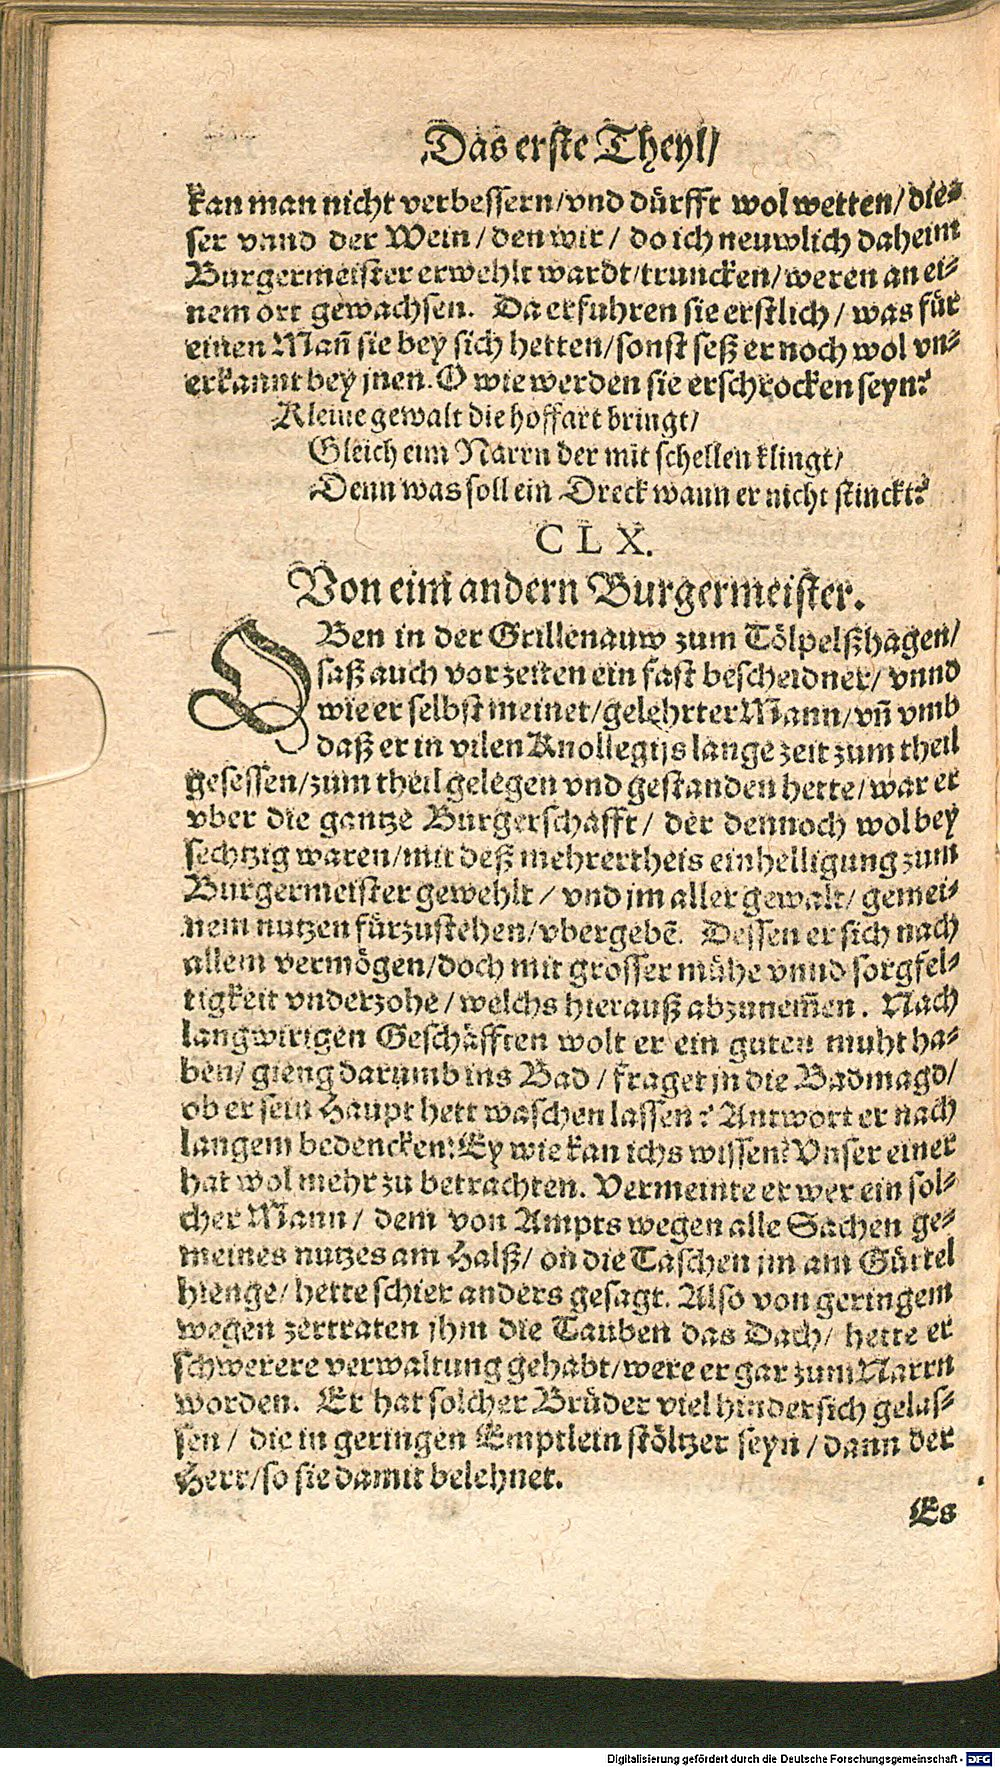 Das erste Theyl/
kan man nicht verbessern/vnd dürfft wol wetten/die-
ser vnnd der Wein/den wir/do ich neuwlich daheim
Burgermeister erwehlt wardt/truncken/weren an ei-
nem ort gewachsen. Da erfuhren sie erstlich/was für
einen Mañ sie bey sich hetten/sonst seß er noch wol vn-
erkannt bey jnen. O wie werden sie erschrocken seyn?
Kleine gewalt die hoffart bringt/
Gleich eim Narrn der mit schellen klingt/
Denn was soll ein Dreck wann er nicht stinckt?
CLX.
Von eim andern Burgermeister.
OBen in der Grillenauw zum Tölpelßhagen/
saß auch vorzeiten ein fast bescheidner/vnnd
wie er selbst meinet/gelehrter Mann/vñ vmb
daß er in vilen Knollegijs lange zeit zum theil
gesessen/zum theil gelegen vnd gestanden hette/war er
vber die gantze Burgerschafft/der dennoch wol bey
sechtzig waren/mit deß mehrertheis einhelligung zum
Burgermeister gewehlt/vnd jm aller gewalt/gemei-
nem nutzen fürzustehen/vbergebẽ. Dessen er sich nach
allem vermögen/doch mit grosser mühe vnnd sorgfel-
tigkeit vnderzohe/welchs hierauß abzunem̃en. Nach
langwirigen Geschäfften wolt er ein guten muht ha-
ben/gieng darumb ins Bad/fraget jn die Badmagd/
ob er sein Haupt hett waschen lassen? Antwort er nach
langem bedencken: Ey wie kan ichs wissen? Vnser einer
hat wol mehr zu betrachten. Vermeinte er wer ein sol-
cher Mann/dem von Ampts wegen alle Sachen ge-
meines nutzes am Halß/on die Taschen jm am Gürtel
hienge/hette schier anders gesagt. Also von geringem
wegen zertraten jhm die Tauben das Dach/hette er
schwerere verwaltung gehabt/were er gar zum Narrn
worden. Er hat solcher Brüder viel hinder sich gelas-
sen/die in geringen Emptlein stöltzer seyn/dann der
Herr/so sie damit belehnet.
Es
Digitalisierung gefördert durch die Deutsche Forschungsgemeinschaft - DFG